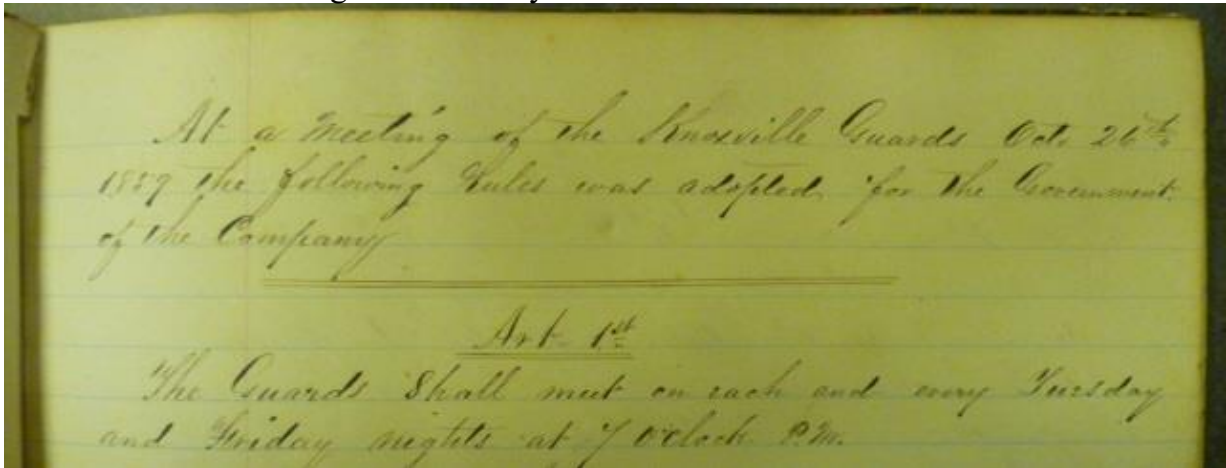 At a Meeting of the Knoxville Guards Oct. 26th
the following Rules was adopted for the Government
of the Company
Art 1st
The Guards Shall meet on each and every Tuesday
and Friday nights at 7 O'clock P.M.